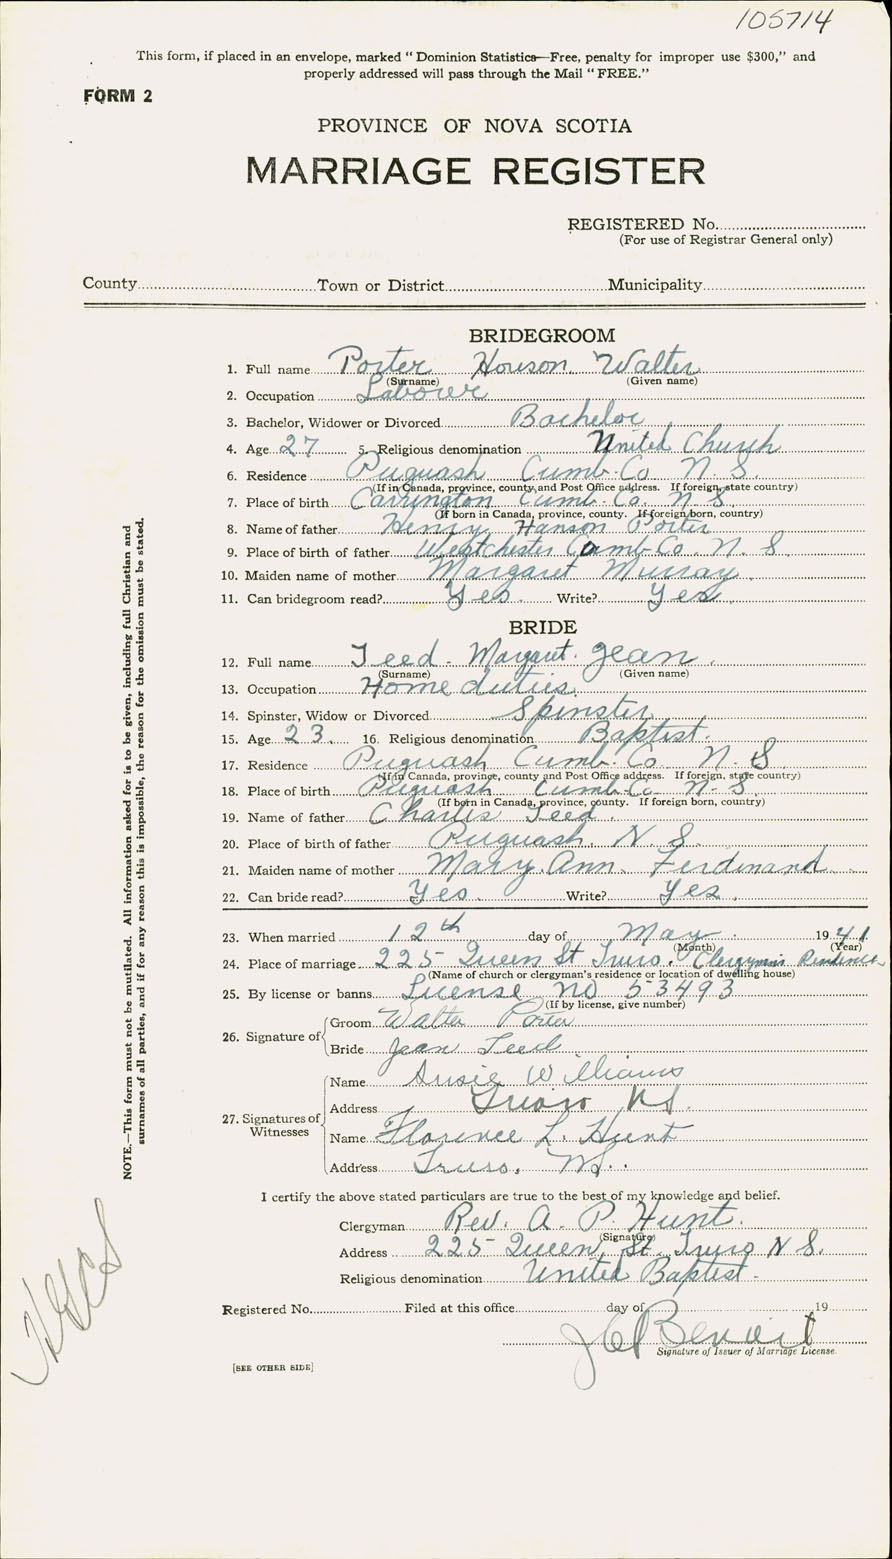 105714
This form, if placed in an envelope, marked "Dominion Statistics—Free, penalty for improper use $300," and
properly addressed will pass through the Mail "FREE."
FORM 2
PROVINCE OF NOVA SCOTIA
MARRIAGE REGISTER
REGISTERED No.
(For use of Registrar General only)
County Town or District Municipality
BRIDEGROOM
1. Full name Porter Howson Walter
(Surname) (Given name)
2. Occupation Laborer
3. Bachelor, Widower or Divorced Bachelor
4. Age 27 5. Religious denomination United Church
6. Residence Puguash Cumb. Co N. S.
(If in Canada, province, county and Post Office address. If foreign, state country)
7. Place of birth Carrington Cumb. Co. N S
(If born in Canada, province, county. If foreign born, country)
8. Name of father Henry Hanson Porter
9. Place of birth of father Westchester Cumb-Co. N. S.
10. Maiden name of mother Margaret Murray
11. Can bridegroom read? Yes. Write? Yes.
BRIDE
12. Full name Teed. Margaret. Jean.
(Surname) (Given name)
13. Occupation Home duties.
14. Spinster, Widow or Divorced Spinster
15. Age 23. 16. Religious denomination Baptist.
17. Residence Puguash Cumb. Co N. S
(If in Canada, province, county and Post Office address. If foreign, state country)
18. Place of birth Puguash Cumb-Co N-S.
(If born in Canada, province, county. If foreign born, country)
19. Name of father Charles Teed.
20. Place of birth of father Puguash. N. S.
21. Maiden name of mother Mary. Ann. Ferdinand
22. Can bride read? Yes. Write? Yes.
23. When married 12th day of May. 1941
(Month) (Year)
24. Place of marriage 225 Queen St Truro. Clergyman's Residence
(Name of church or clergyman's residence or location of dwelling house)
25. By license or banns License no 53493
(If by license, give number)
26. Signature of
Groom Walter Porter
Bride Jean Teed
27. Signatures of Witnesses
Name Susie Williams
Address Truro NS.
Name Florence L. Hunt
Address Truro, NS.
I certify the above stated particulars are true to the best of my knowledge and belief.
Clergyman Rev. A. P. Hunt.
(Signature)
Address 225 Queen St. Truro N S.
Religious denomination United Baptist.
Registered No. Filed at this office day of 19
J C Benoit
Signature of Issuer of Marriage License.
[SEE OTHER SIDE]
NOTE.—This form must not be mutilated. All information asked for is to be given, including full Christian and
surnames of all parties, and if for any reason this is impossible, the reason for the omission must be stated.